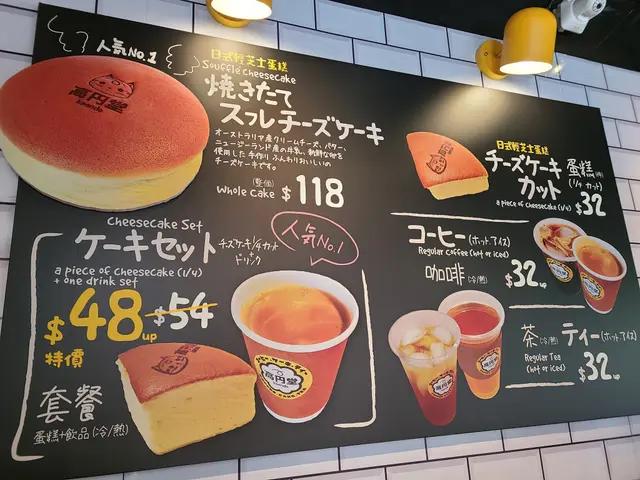 人気No.1
高円堂
日式輕芝士蛋糕
Soufflé cheesecake
焼きたて
スフレチーズケーキ
オーストラリア産クリームチーズ、バター、
ニュージーランド産の牛乳、新鮮な卵を
使用した手作りふんわりおいしいの
チーズケーキです。
(整個)
Whole cake $118
Cheesecake Set
ケーキセット
チーズケーキ1/4カット
+
ドリンク
a piece of cheesecake (1/4)
+ one drink set
人気No.1
$48up $54
特價
套餐
蛋糕+飲品(冷/熱)
高円堂
日式輕芝士蛋糕
チーズケーキ
カット
蛋糕(件)
(1/4カット)
a piece of cheesecake (1/4) $32
コーヒー(ホット、アイス)
Regular Coffee (hot or iced)
咖啡(冷/熱) $32up
茶(冷/熱) ティー(ホット、アイス)
Regular Tea
(hot or iced) $32up